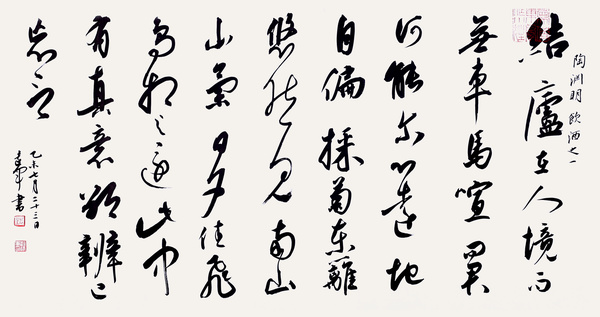 陶渊明飲酒之一
結廬在人境而
無車馬喧問君
何能尔心遠地
自偏採菊東籬
悠然見南山
山氣日夕佳飛
鳥相与還此中
有真意欲辨已
忘言
乙未七月二十三日
書